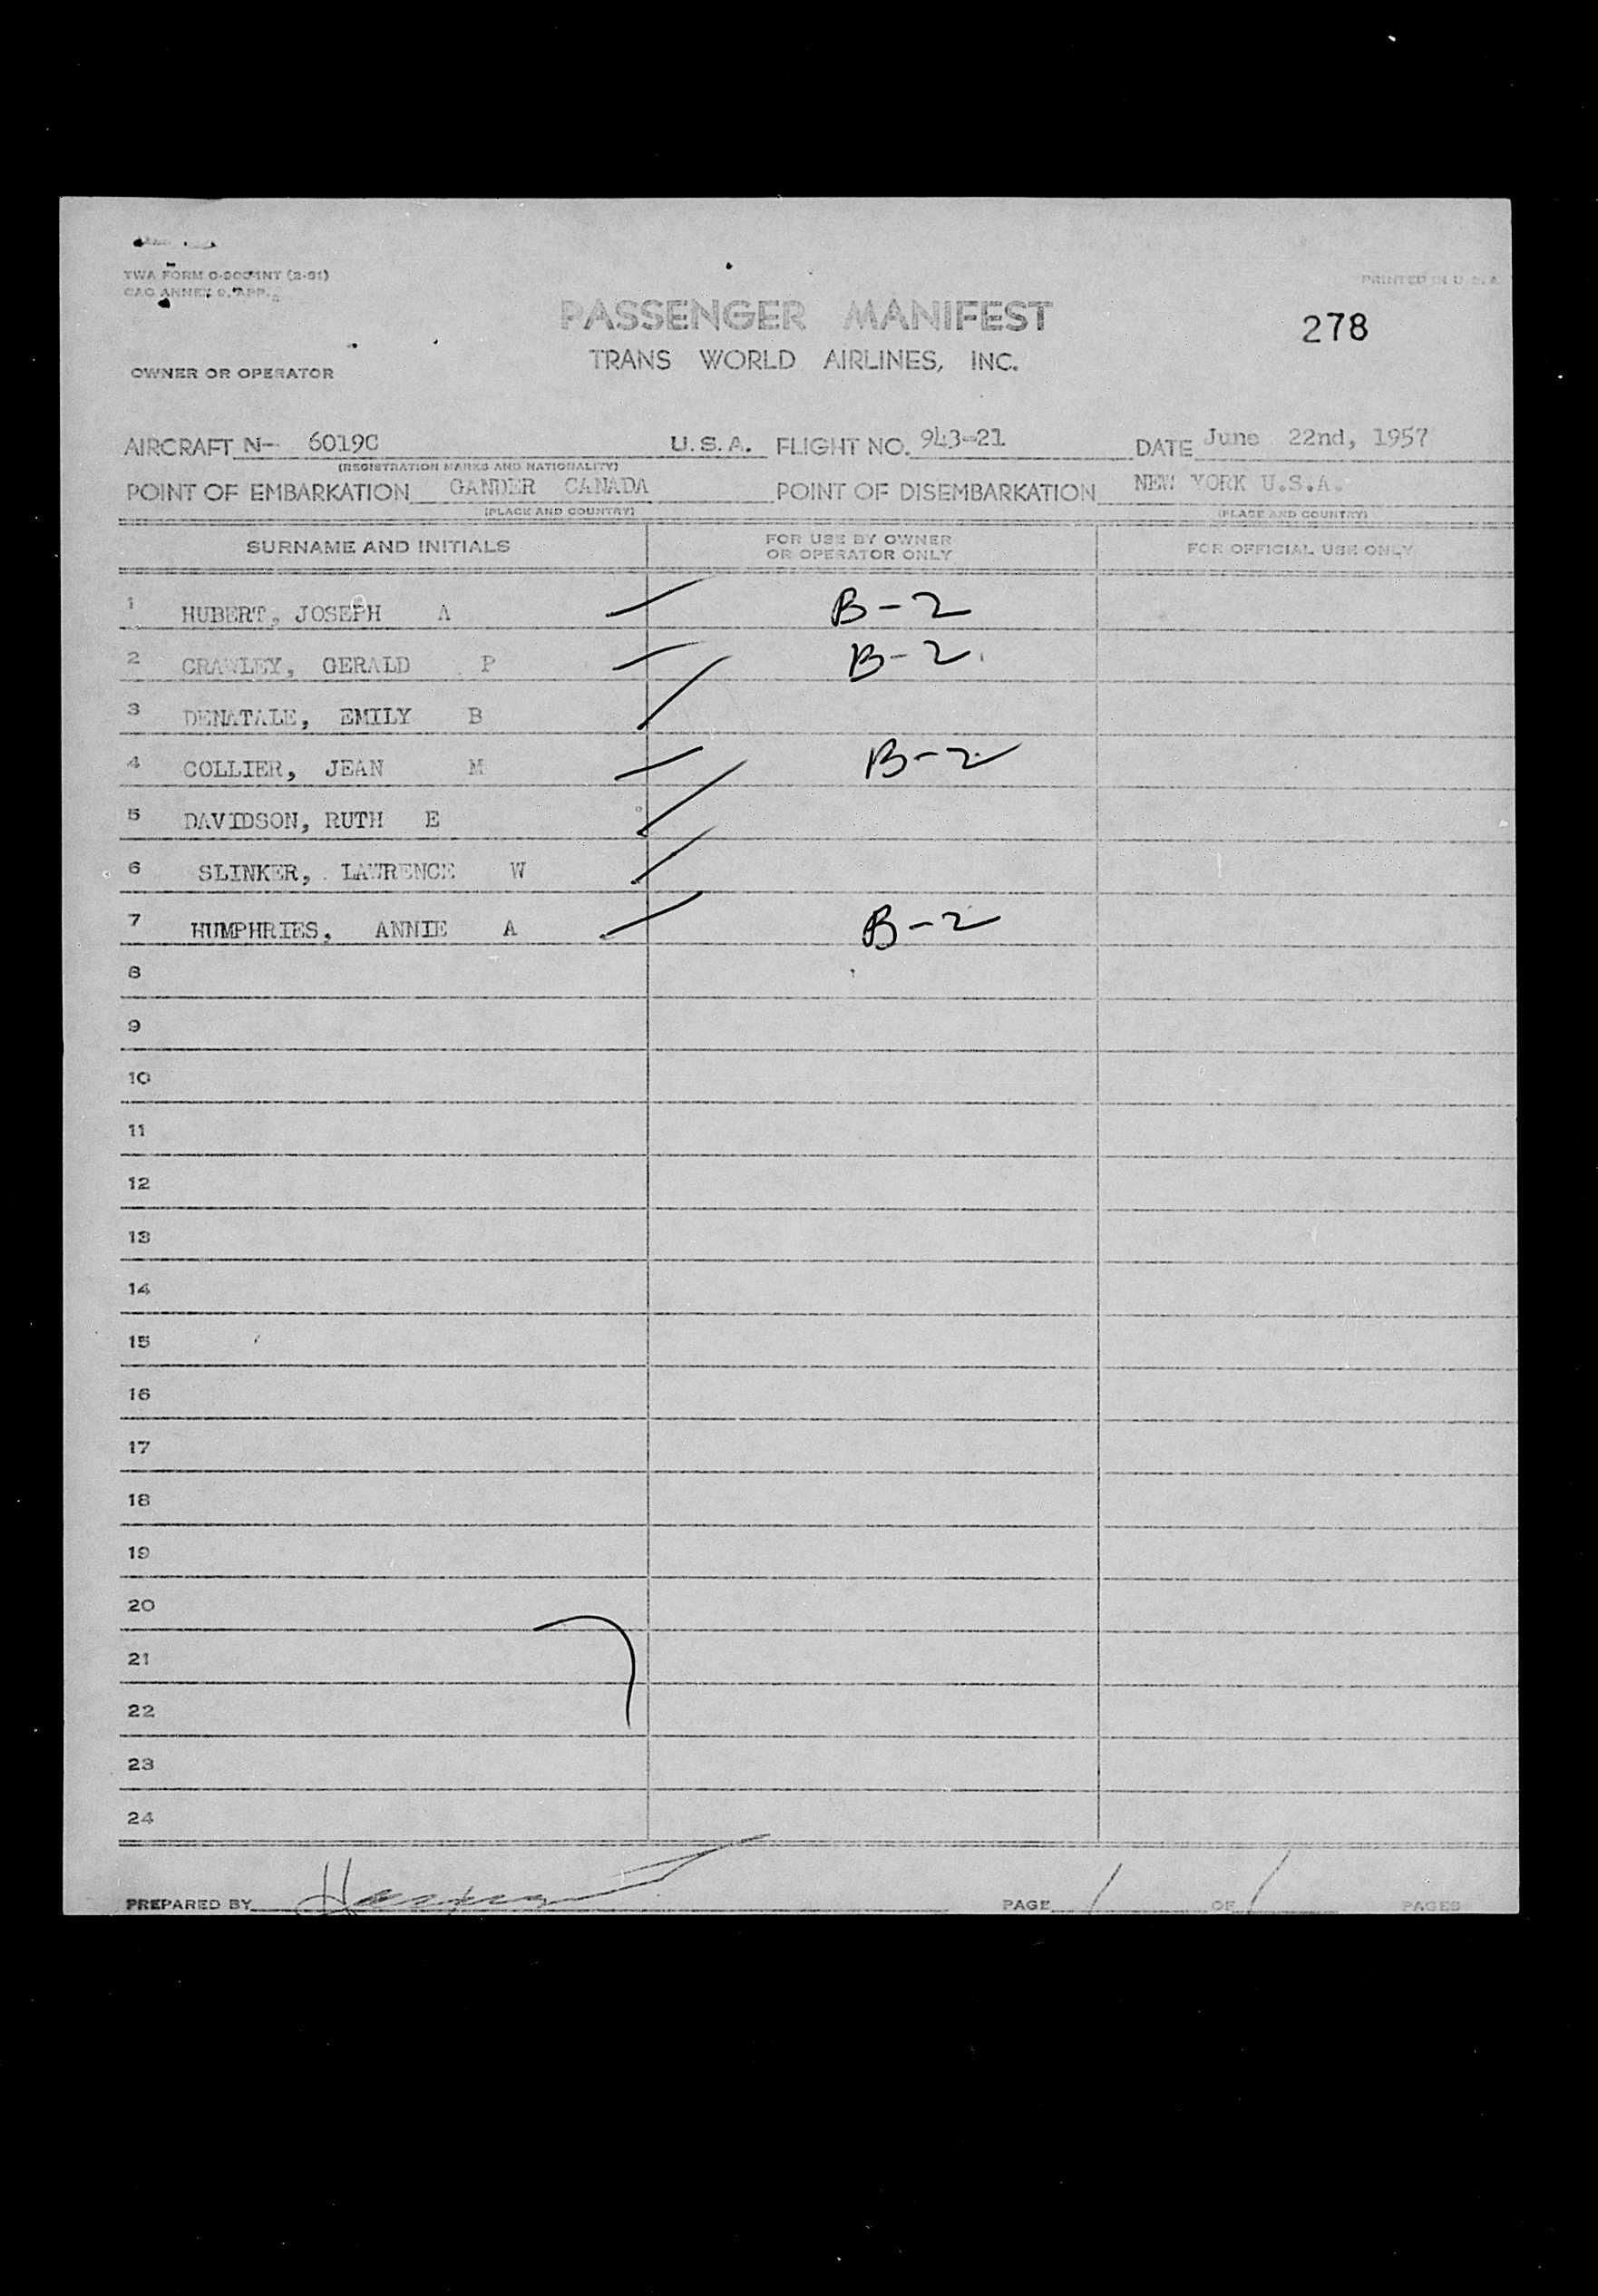 TWA FORM
PRINTED IN U.S.A.
PASSENGER MANIFEST
278
TRANS WORLD AIRLINES, INC.
OWNER OR OPERATOR
AIRCRAFT N- 6019C U.S.A. FLIGHT NO. 943-21 DATE June 22nd, 1957
(REGISTRATION MARKS AND NATIONALITY)
POINT OF EMBARKATION GANDER CANADA POINT OF DISEMBARKATION NEW YORK U.S.A.
(PLACE AND COUNTRY) (PLACE AND COUNTRY)
SURNAME AND INITIALS FOR USE BY OWNER OR OPERATOR ONLY FOR OFFICIAL USE ONLY
1 HUBERT, JOSEPH A B-2
2 CRAWLEY, GERALD P B-2
3 DENATALE, EMILY B
4 COLLIER, JEAN M B-2
5 DAVIDSON, RUTH E
6 SLINKER, LAWRENCE W
7 HUMPHRIES, ANNIE A B-2
8
9
10
11
12
13
14
15
16
17
18
19
20
21
22
23
24
PREPARED BY PAGE 1 OF 1 PAGES